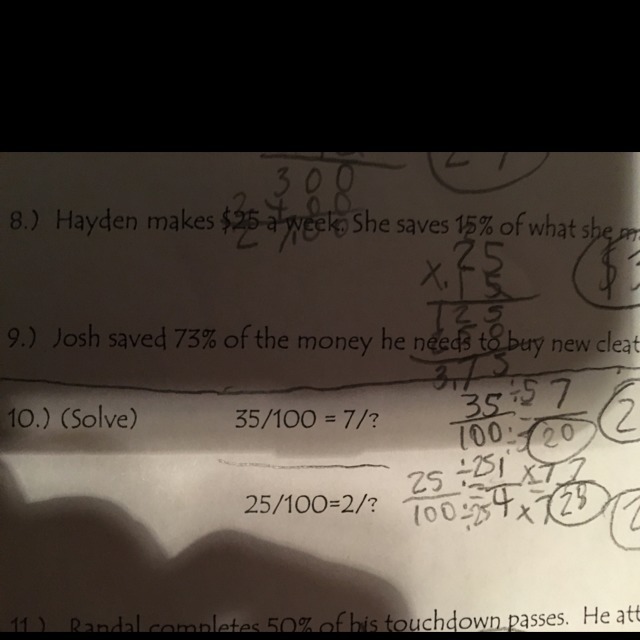 300
2400
2700
8.) Hayden makes $25 a week. She saves 15% of what she
25
x.15
125
250
3.75
$3
9.) Josh saved 73% of the money he needs to buy new cleat
10.) (Solve) 35/100 = 7/?
35 ÷5 7
100 ÷5 20
2
25/100=2/?
25 ÷25 1 x7 7
100 ÷25 4 x7 28
2
11.) Randal completes 50% of his touchdown passes. He att